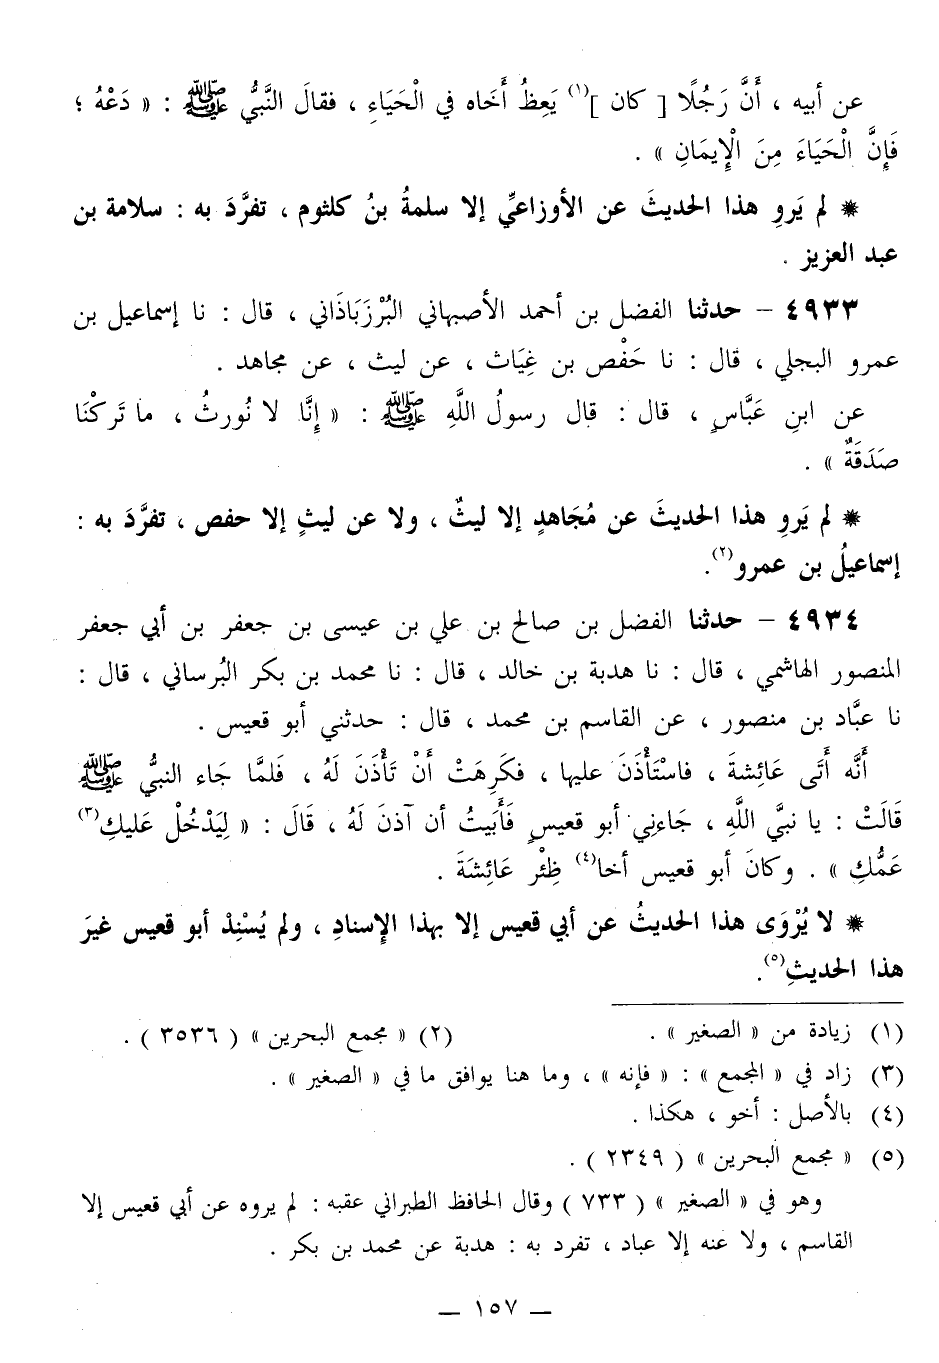 عن أبيه ، أَنَّ رَجُلًا [ كان ](١) يَعِظُ أَخَاه في الْحَيَاءِ ، فقالَ النَّبيُّ ﷺ : « دَعْهُ ؛
فَإِنَّ الْحَيَاءَ مِنَ الْإِيمَانِ » .
* لم يَروِ هذا الحديثَ عن الأوزاعيِّ إلا سلمةُ بنُ كلثوم ، تفرَّدَ به : سلامة بن
عبد العزيز .
٤٩٣٣ – حدثنا الفضل بن أحمد الأصبهاني البُرْزَبَاذَاني ، قال : نا إسماعيل بن
عمرو البجلي ، قال : نا حَفْص بن غِيَاث ، عن ليث ، عن مجاهد .
عن ابنِ عَبَّاسٍ ، قال : قال رسولُ اللَّهِ ﷺ : « إِنَّا لا نُورثُ ، ما تَركْنَا
صَدَقَةٌ » .
* لم يَروِ هذا الحديثَ عن مُجَاهدٍ إلا ليثٌ ، ولا عن ليثٍ إلا حفص ، تفرَّدَ به :
إسماعيلُ بن عمرو(٢).
٤٩٣٤ – حدثنا الفضل بن صالح بن علي بن عيسى بن جعفر بن أبي جعفر
المنصور الهاشمي ، قال : نا هدبة بن خالد ، قال : نا محمد بن بكر البُرساني ، قال :
نا عبَّاد بن منصور ، عن القاسم بن محمد ، قال : حدثني أبو قعيس .
أَنَّه أَتَى عَائِشةَ ، فاسْتَأْذَنَ عليها ، فكَرِهَتْ أَنْ تَأْذَنَ لَهُ ، فَلمَّا جَاء النبيُّ ﷺ
قَالَتْ : يا نبيَّ اللَّهِ ، جَاءنِي أبو قعيسٍ فَأَبَيتُ أن آذنَ لَهُ ، قَالَ : « لِيَدْخُلْ عَليكِ(٣)
عَمُّكِ » . وكانَ أبو قعيس أخا(٤) ظِئْرِ عَائِشَةَ .
* لا يُرْوَى هذا الحديثُ عن أبي قعيس إلا بهذا الإسنادِ ، ولم يُسْنِدْ أبو قعيس غيرَ
هذا الحديثِ(٥).
(١) زيادة من « الصغير » .
(٢) « مجمع البحرين » ( ٣٥٣٦ ) .
(٣) زاد في « المجمع » : « فإنه » ، وما هنا يوافق ما في « الصغير » .
(٤) بالأصل : أخو ، هكذا .
(٥) « مجمع البحرين » ( ٢٣٤٩ ) .
وهو في « الصغير » ( ٧٣٣ ) وقال الحافظ الطبراني عقبه : لم يروه عن أبي قعيس إلا
القاسم ، ولا عنه إلا عباد ، تفرد به : هدبة عن محمد بن بكر .
— ١٥٧ —